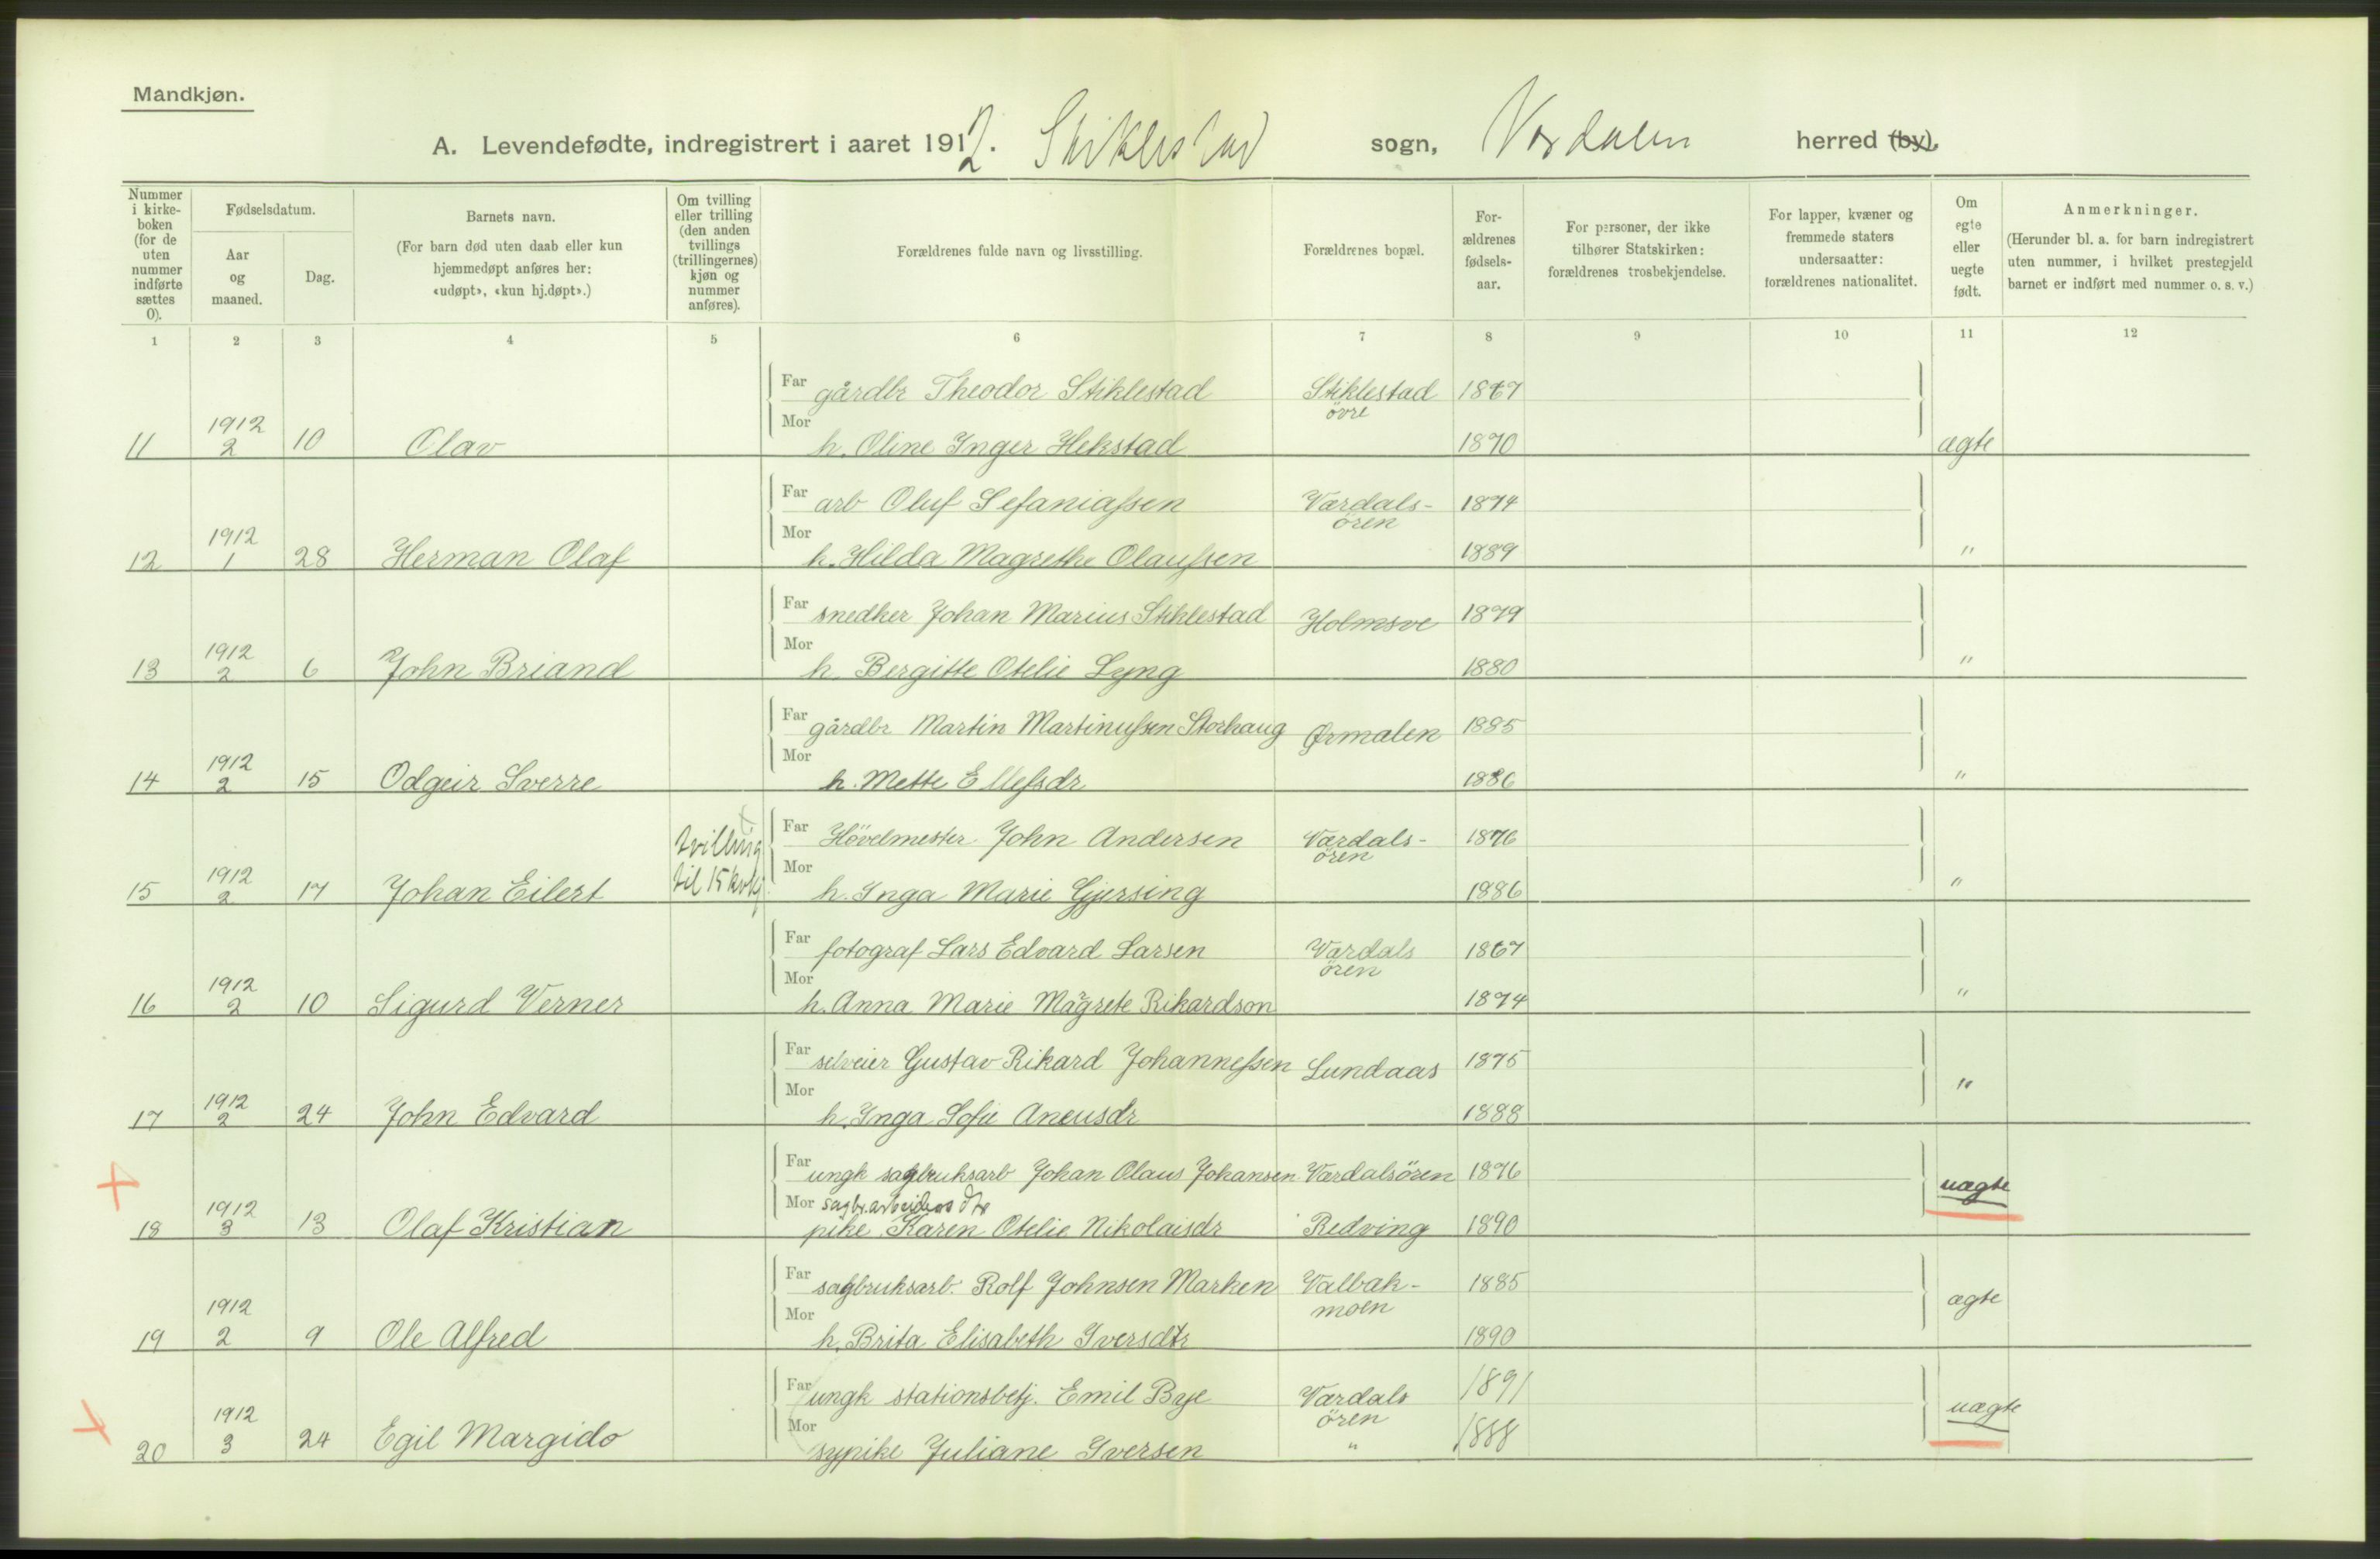 Mandkjøn.
A. Levendefødte, indregistrert i aaret 1912. Stiklestad sogn, Værdalen herred (by).
Nummer i kirke-boken (for de uten nummer indførte sættes 0).
Fødselsdatum.
Aar og maaned.
Dag.
Barnets navn.
(For barn død uten daab eller kun hjemmedøpt anføres her: «udøpt», «kun hj.døpt».)
Om tvilling eller trilling (den anden tvillings (trillingernes) kjøn og nummer anføres).
Forældrenes fulde navn og livsstilling.
Forældrenes bopæl.
For-ældrenes fødsels-aar.
For personer, der ikke tilhører Statskirken: forældrenes trosbekjendelse.
For lapper, kvæner og fremmede staters undersaatter: forældrenes nationalitet.
Om egte eller uegte født.
Anmerkninger.
(Herunder bl. a. for barn indregistrert uten nummer, i hvilket prestegjeld barnet er indført med nummer o. s. v.)
1 2 3 4 5 6 7 8 9 10 11 12
Far gårdbr Theodor Stiklestad Stiklestad övre 1867
11 1912 2 10 Olav Mor h. Oline Inger Hekstad 1870 ægte
Far arb Oluf Sefaniassen Værdals-ören 1874
12 1912 1 28 Herman Olaf Mor h. Hilda Magrethe Olaussen 1889 "
Far snedker Johan Marius Stiklestad Holmsve 1879
13 1912 2 6 John Briand Mor h. Bergitte Otelie Lyng 1880 "
Far gårdbr Martin Martinussen Storhaug Ørmalen 1885
14 1912 2 15 Odgeir Sverre Mor h. Mette Ellefsdr 1886 "
Far Hövelmester John Andersen Værdals-ören 1876
15 1912 2 17 Johan Eilert tvilling til 15 kvkj. Mor h. Inga Marie Gjersing 1886 "
Far fotograf Lars Edvard Larsen Værdals ören 1867
16 1912 2 10 Sigurd Verner Mor h. Anna Marie Magrete Rikardson 1874 "
Far selveier Gustav Rikard Johannessen Lundaas 1875
17 1912 2 24 John Edvard Mor h. Inga Sofie Aneusdr 1888 "
Far ungk sagbruksarb Johan Olaus Johansen Værdalsören 1876
Mor sagbr.arbeiders dtr
18 1912 3 13 Olaf Kristian pike Karen Otelie Nikolaisdr Redving 1890 uægte
Far sagbruksarb. Rolf Johnsen Marken Valbak-moen 1885
19 1912 2 9 Ole Alfred Mor h. Brita Elisabeth Iversdtr 1890 ægte
Far ungk stationsbetj. Emil Bye Værdals ören 1891
20 1912 3 24 Egil Margido Mor sypike Juliane Iversen " 1888 uægte